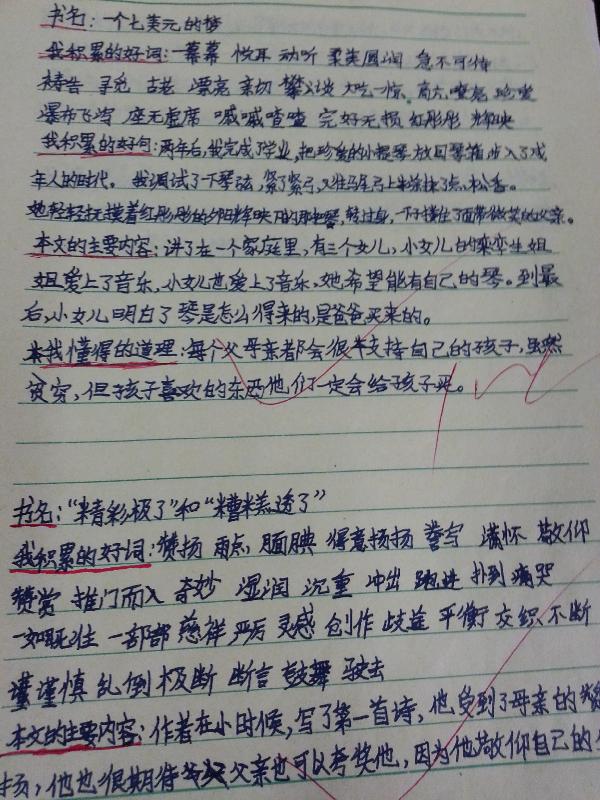 书名：一个七美元的梦
我积累的好词：一幕幕 悦耳 动听 柔美圆润 急不可待
祷告 寻觅 古老 漂亮 亲切 攀谈 大吃一惊 高大 嘹亮 珍爱
瀑布飞泻 座无虚席 喊喊喳喳 完好无损 红彤彤 辉映
我积累的好句：两年后，我完成了学业，把珍爱的小提琴放回琴箱，步入了成
年人的时代。我调试了下琴弦，紧了紧弓，又往马尾弓上涂抹了点松香。
她轻轻抚摸着红彤彤的夕阳辉映下的那把琴，转过身，一下子搂住了面带微笑的父亲。
本文的主要内容：讲了在一个家庭里，有三个女儿，小女儿的孪生姐
姐爱上了音乐，小女儿也爱上了音乐，她希望能有自己的琴。到最
后，小女儿明白了琴是怎么得来的，是爸爸买来的。
我懂得的道理：每个父母亲都会很支持自己的孩子，虽然
贫穷，但孩子喜欢的东西他们一定会给孩子买。
书名：“精彩极了”和“糟糕透了”
我积累的好词：赞扬 雨点 腼腆 得意扬扬 誊写 满怀 敬仰
赞赏 推门而入 奇妙 湿润 沉重 冲出 跑进 扑到 痛哭
一如既往 一部部 慈祥 严厉 灵感 创作 歧途 平衡 交织 不断
谨慎 乱倒 极断 断言 鼓舞 驶去
本文的主要内容：作者在小时候，写了第一首诗，他受到了母亲的赞
扬，他也很期待父亲也可以夸奖他，因为他敬仰自己的